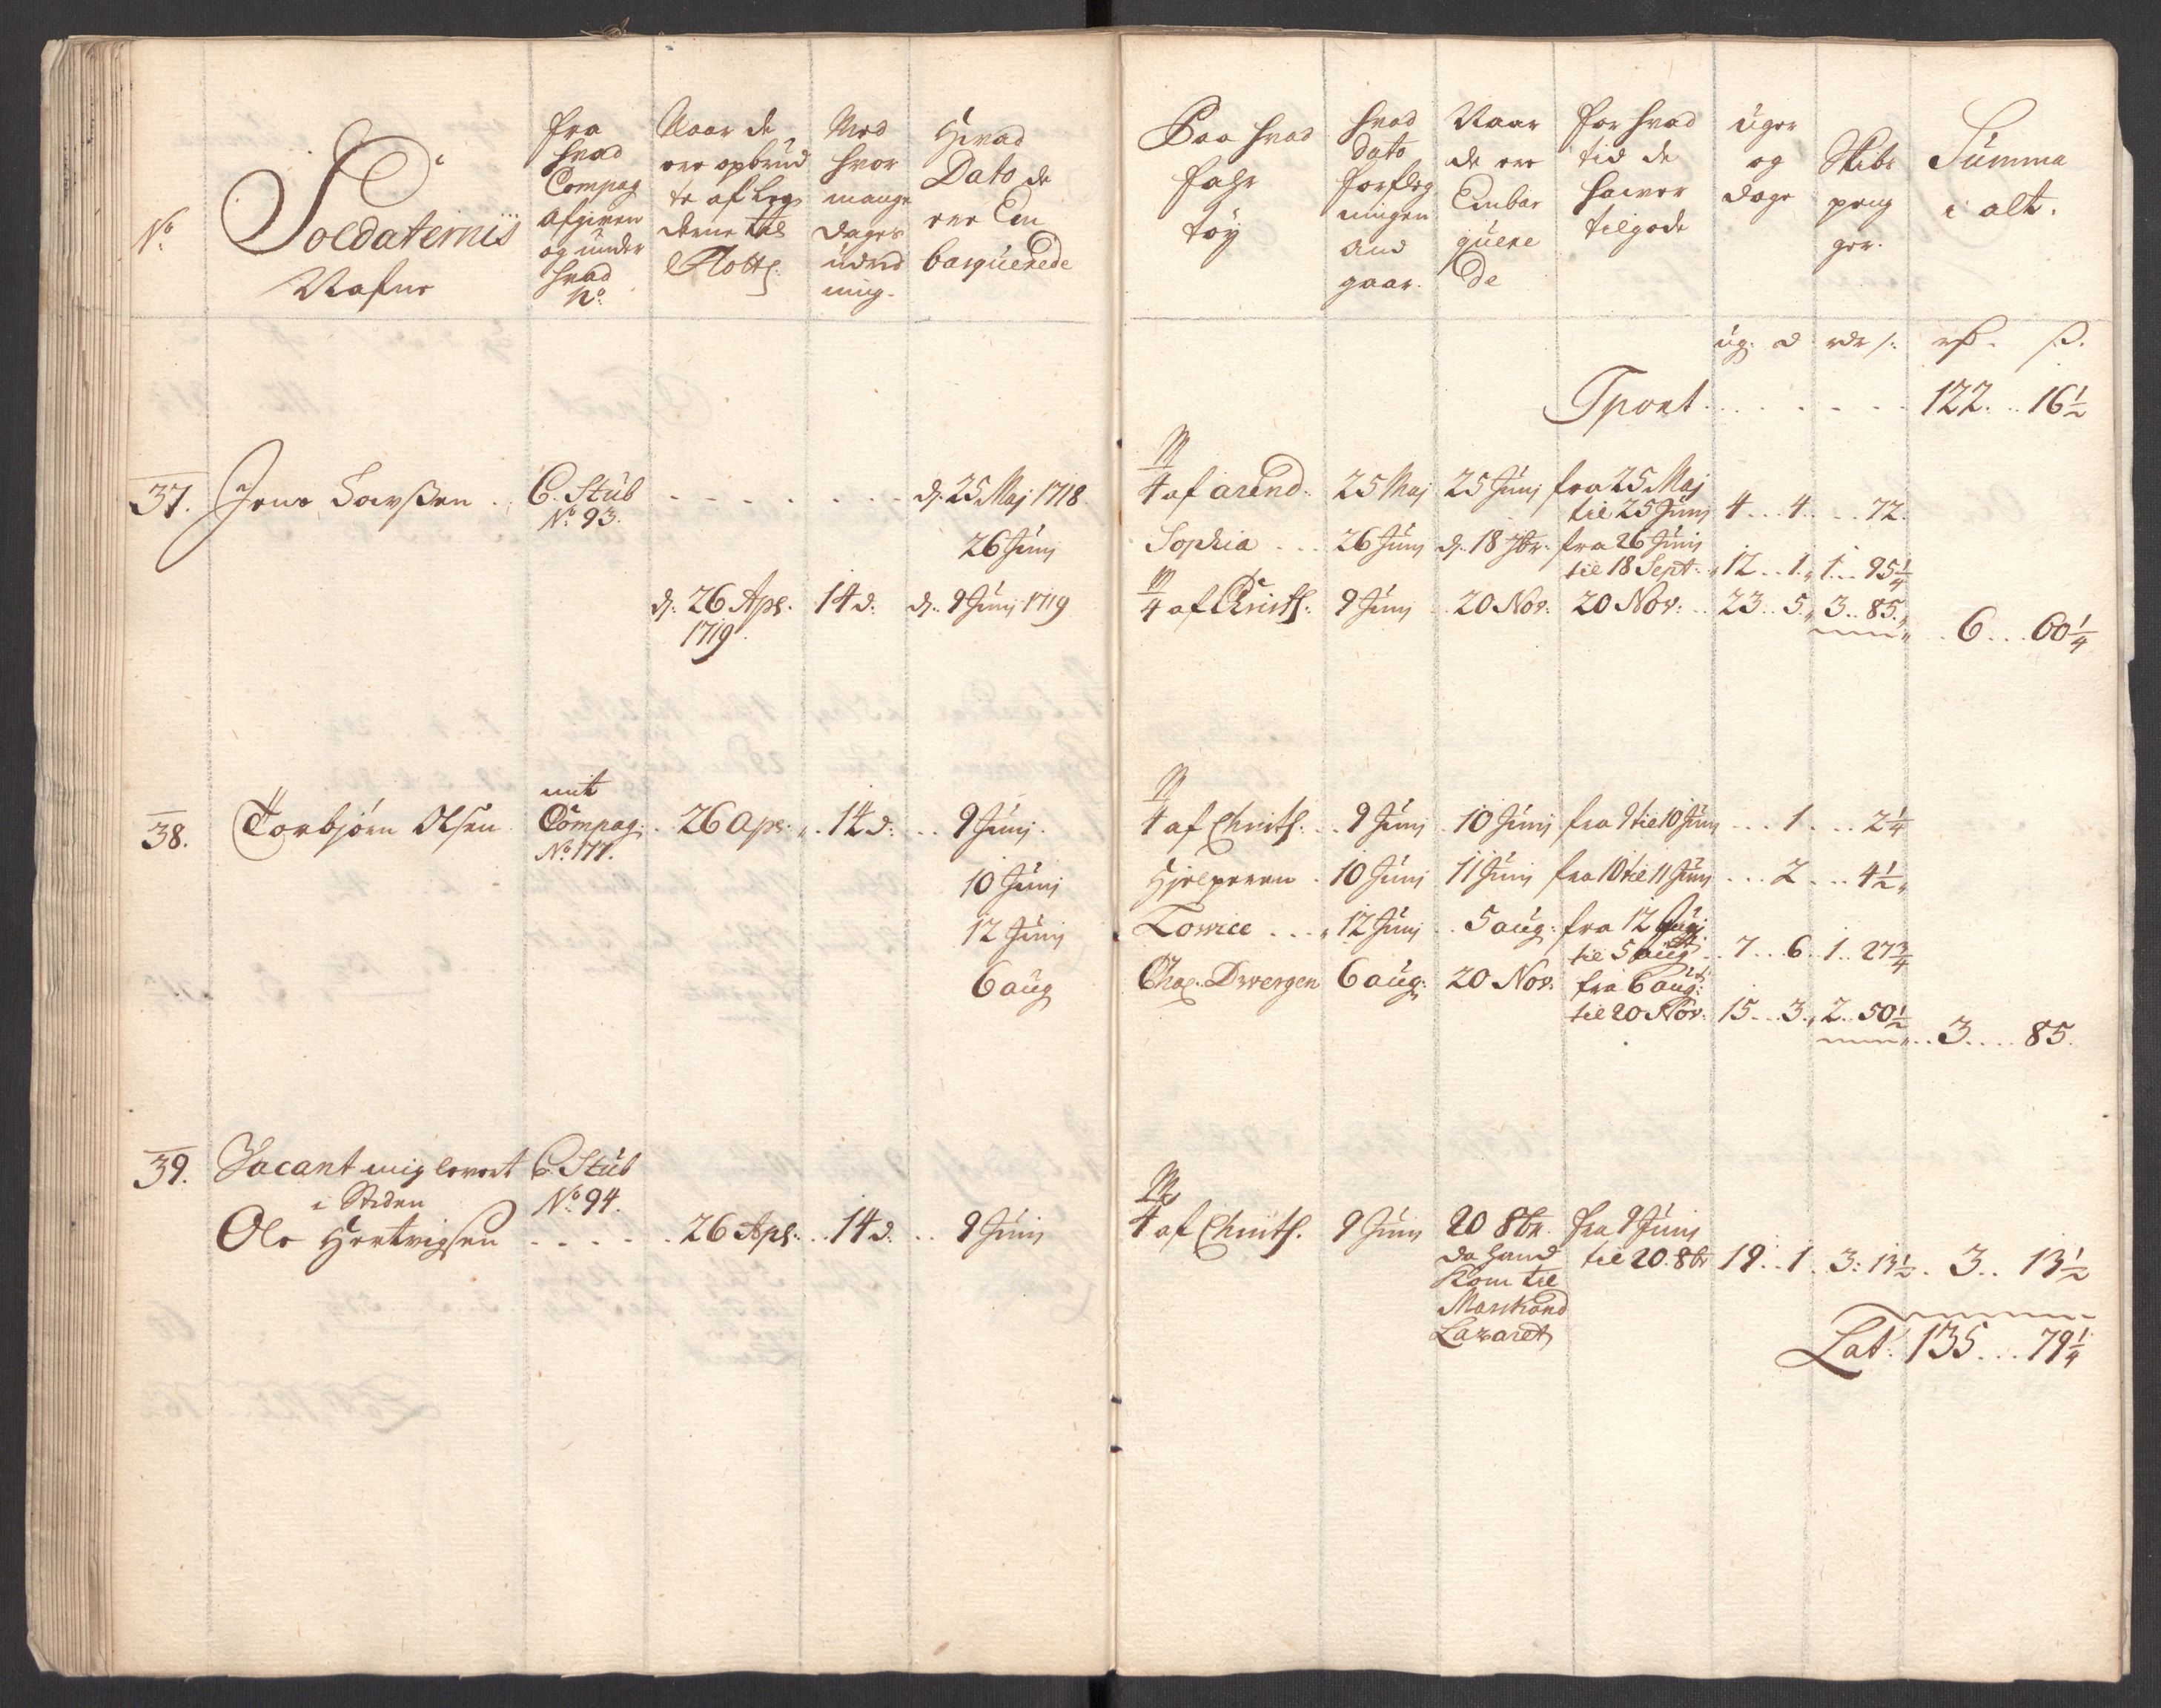 No.
Soldaternis
Nafne
fra
hvad
Compag
afgiven
og under
hvad
No.
Naar de
ere opbrud
te af Leg
derne til
Flotts.
Med
hvor
mange
dages
udred
ning.
Hvad
Dato de
ere Em
barquerede
Paa hvad
fahr
töy
hvad
dato
forfleg
ningen
And
gaar.
Naar
de ere
Embar
quere
de
for hvad
tid de
haver
tilgode
Uger
og
dage
Skibs
peng
ger.
Summa
i alt.
ug: d rdr s: rd. s.
Tport . . . . . . . 122 . . 16½
37. Jens C. Stub . . . . . . . d. 25 Maj 1718 4 af arend: 25 Maj 25 Junj fra 25 Maj
No. 93. til 25 Junj 4 . . 4 . . . 72.
26 Junj Sophia . . . 26 Junj d. 18 7br. fra 26 Junj
til 18 Sept. 12 . . 1. 1 . . 95¼
d. 26 Apr. 14 d. d. 9 Junj 1719 4 af Christ. 9 Junj 20 Nov: 20 Nov: 23 . . 5. 3 . . 85.
1719. 6 . . . 60¼
mit
38. Torbjørn Olsen Compag: 26 Apr: 14 d: 9 Junj. 4 af Christ. 9 Junj 10 Junj fra 9 til 10 Junj . . . 1 . . . 2¼
No. 177.
10 Junj Hjelperen . 10 Junj 11 Junj fra 10 til 11 Junj . . . 2 . . . 4½
12 Junj Lowice . . . 12 Junj 5 aug: fra 12 Junj
til 5 aug 7 . . 6. 1 . . 27¾
6 aug Chal. Dwergen 6 aug: 20 Nov: fra 6 aug:
til 20 Nov: 15 . . 3. 2 . . 50½
. . 3 . . . . 85.
39. Vacant mig levert C. Stub
i Steden No. 94.
Ole Hertvigsen . . . . . 26 Apr: 14 d. . . 9 Junj 4 af Christ. 9 Junj 20 8br. fra 9 Junj
da hand til 20. 8br 19 . . 1. 3: 13½ . 3 . . 13½
Kom til
Marstrand
Lazaret
Lat. 135 . . . 79¼